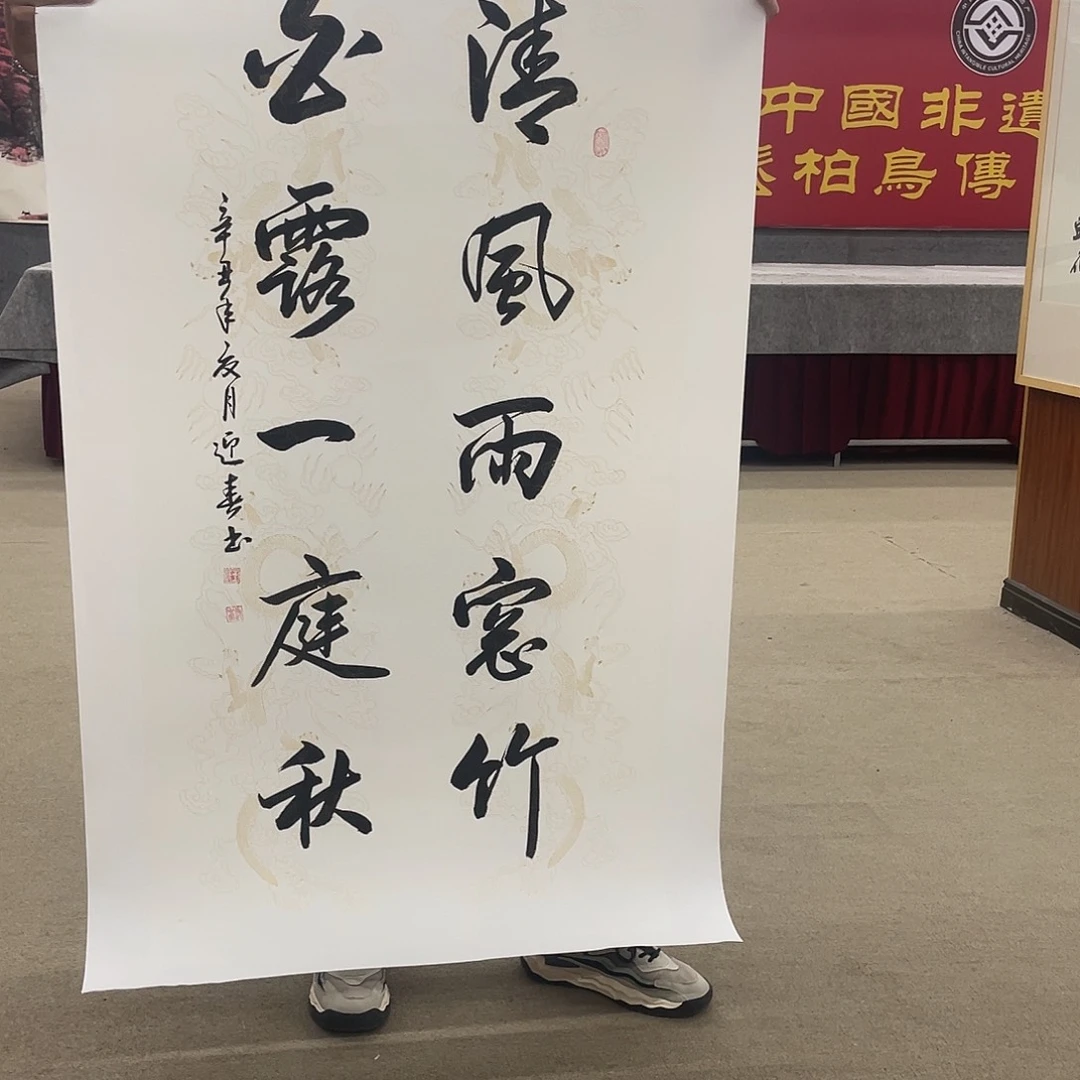 清風雨窓竹
白露一庭秋
辛丑年夏月迎春书
中國非遺
柏鳥傳
CHINA INTANGIBLE CULTURAL HERITAGE